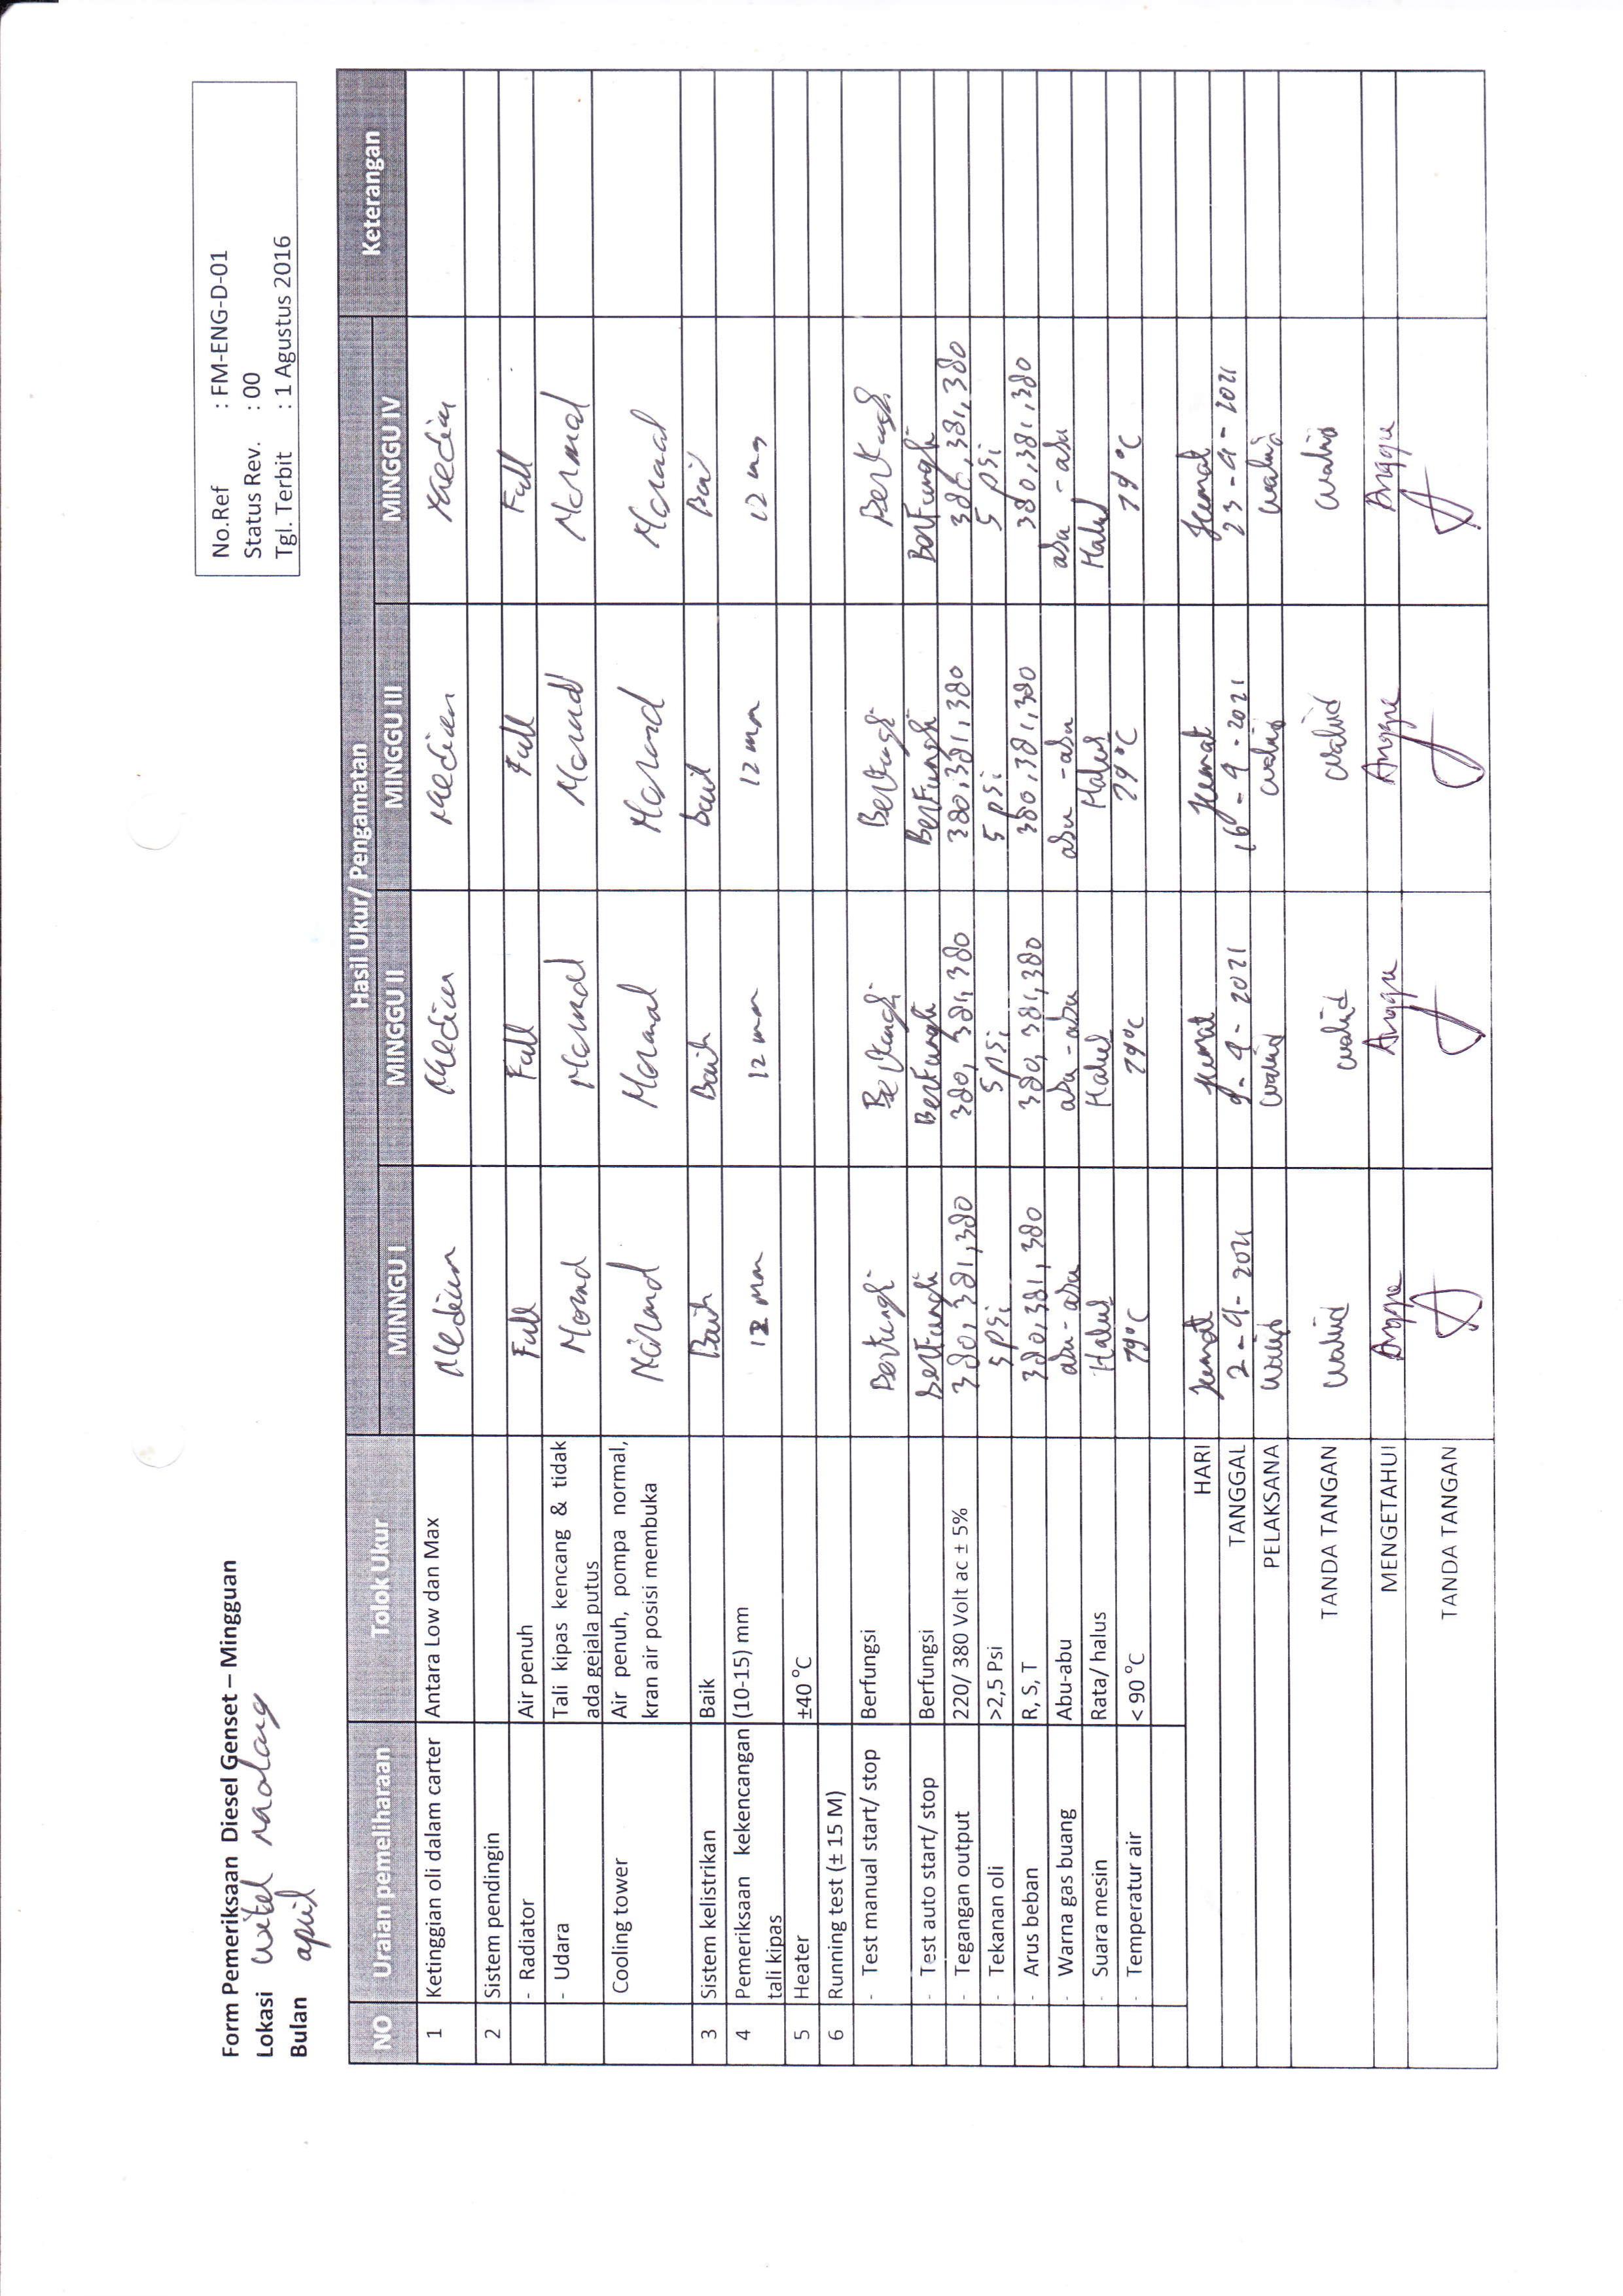 Form Pemeriksaan Diesel Genset – Mingguan
Lokasi Witel Malang
Bulan april
No.Ref : FM-ENG-D-01
Status Rev. : 00
Tgl. Terbit : 1 Agustus 2016
NO Uraian pemeliharaan Tolok Ukur Hasil Ukur/ Pengamatan Keterangan
MINNGU I MINGGU II MINGGU III MINGGU IV
1 Ketinggian oli dalam carter Antara Low dan Max Medium Medium Medium Medium
2 Sistem pendingin
- Radiator Air penuh Full Full Full Full
- Udara Tali kipas kencang & tidak ada gejala putus Normal Normal Normal Normal
Cooling tower Air penuh, pompa normal, kran air posisi membuka Normal Normal Normal Normal
3 Sistem kelistrikan Baik Baik Baik baik Baik
4 Pemeriksaan kekencangan tali kipas (10-15) mm 12 mm 12 mm 12 mm 12 mm
5 Heater ±40 °C
6 Running test (± 15 M)
- Test manual start/ stop Berfungsi Berfungsi Berfungsi Berfungsi Berfungsi
- Test auto start/ stop Berfungsi BerFungsi BerFungsi BerFungsi BerFungsi
- Tegangan output 220/ 380 Volt ac ± 5% 380, 381, 380 380, 381, 380 380, 381, 380 380, 381, 380
- Tekanan oli >2,5 Psi 5 psi 5 psi 5 psi 5 psi
- Arus beban R, S, T 380, 381, 380 380, 381, 380 380, 381, 380 380, 381, 380
- Warna gas buang Abu-abu abu - abu abu - abu abu - abu abu - abu
- Suara mesin Rata/ halus Halus Halus Halus Halus
- Temperatur air < 90 °C 79°C 79°C 79°C 79°C
HARI Jumat Jumat Jumat Jumat
TANGGAL 2-4-2021 9-4-2021 16-4-2021 23-4-2021
PELAKSANA walid walid walid walid
TANDA TANGAN walid walid walid walid
MENGETAHUI Angga Angga Angga Angga
TANDA TANGAN